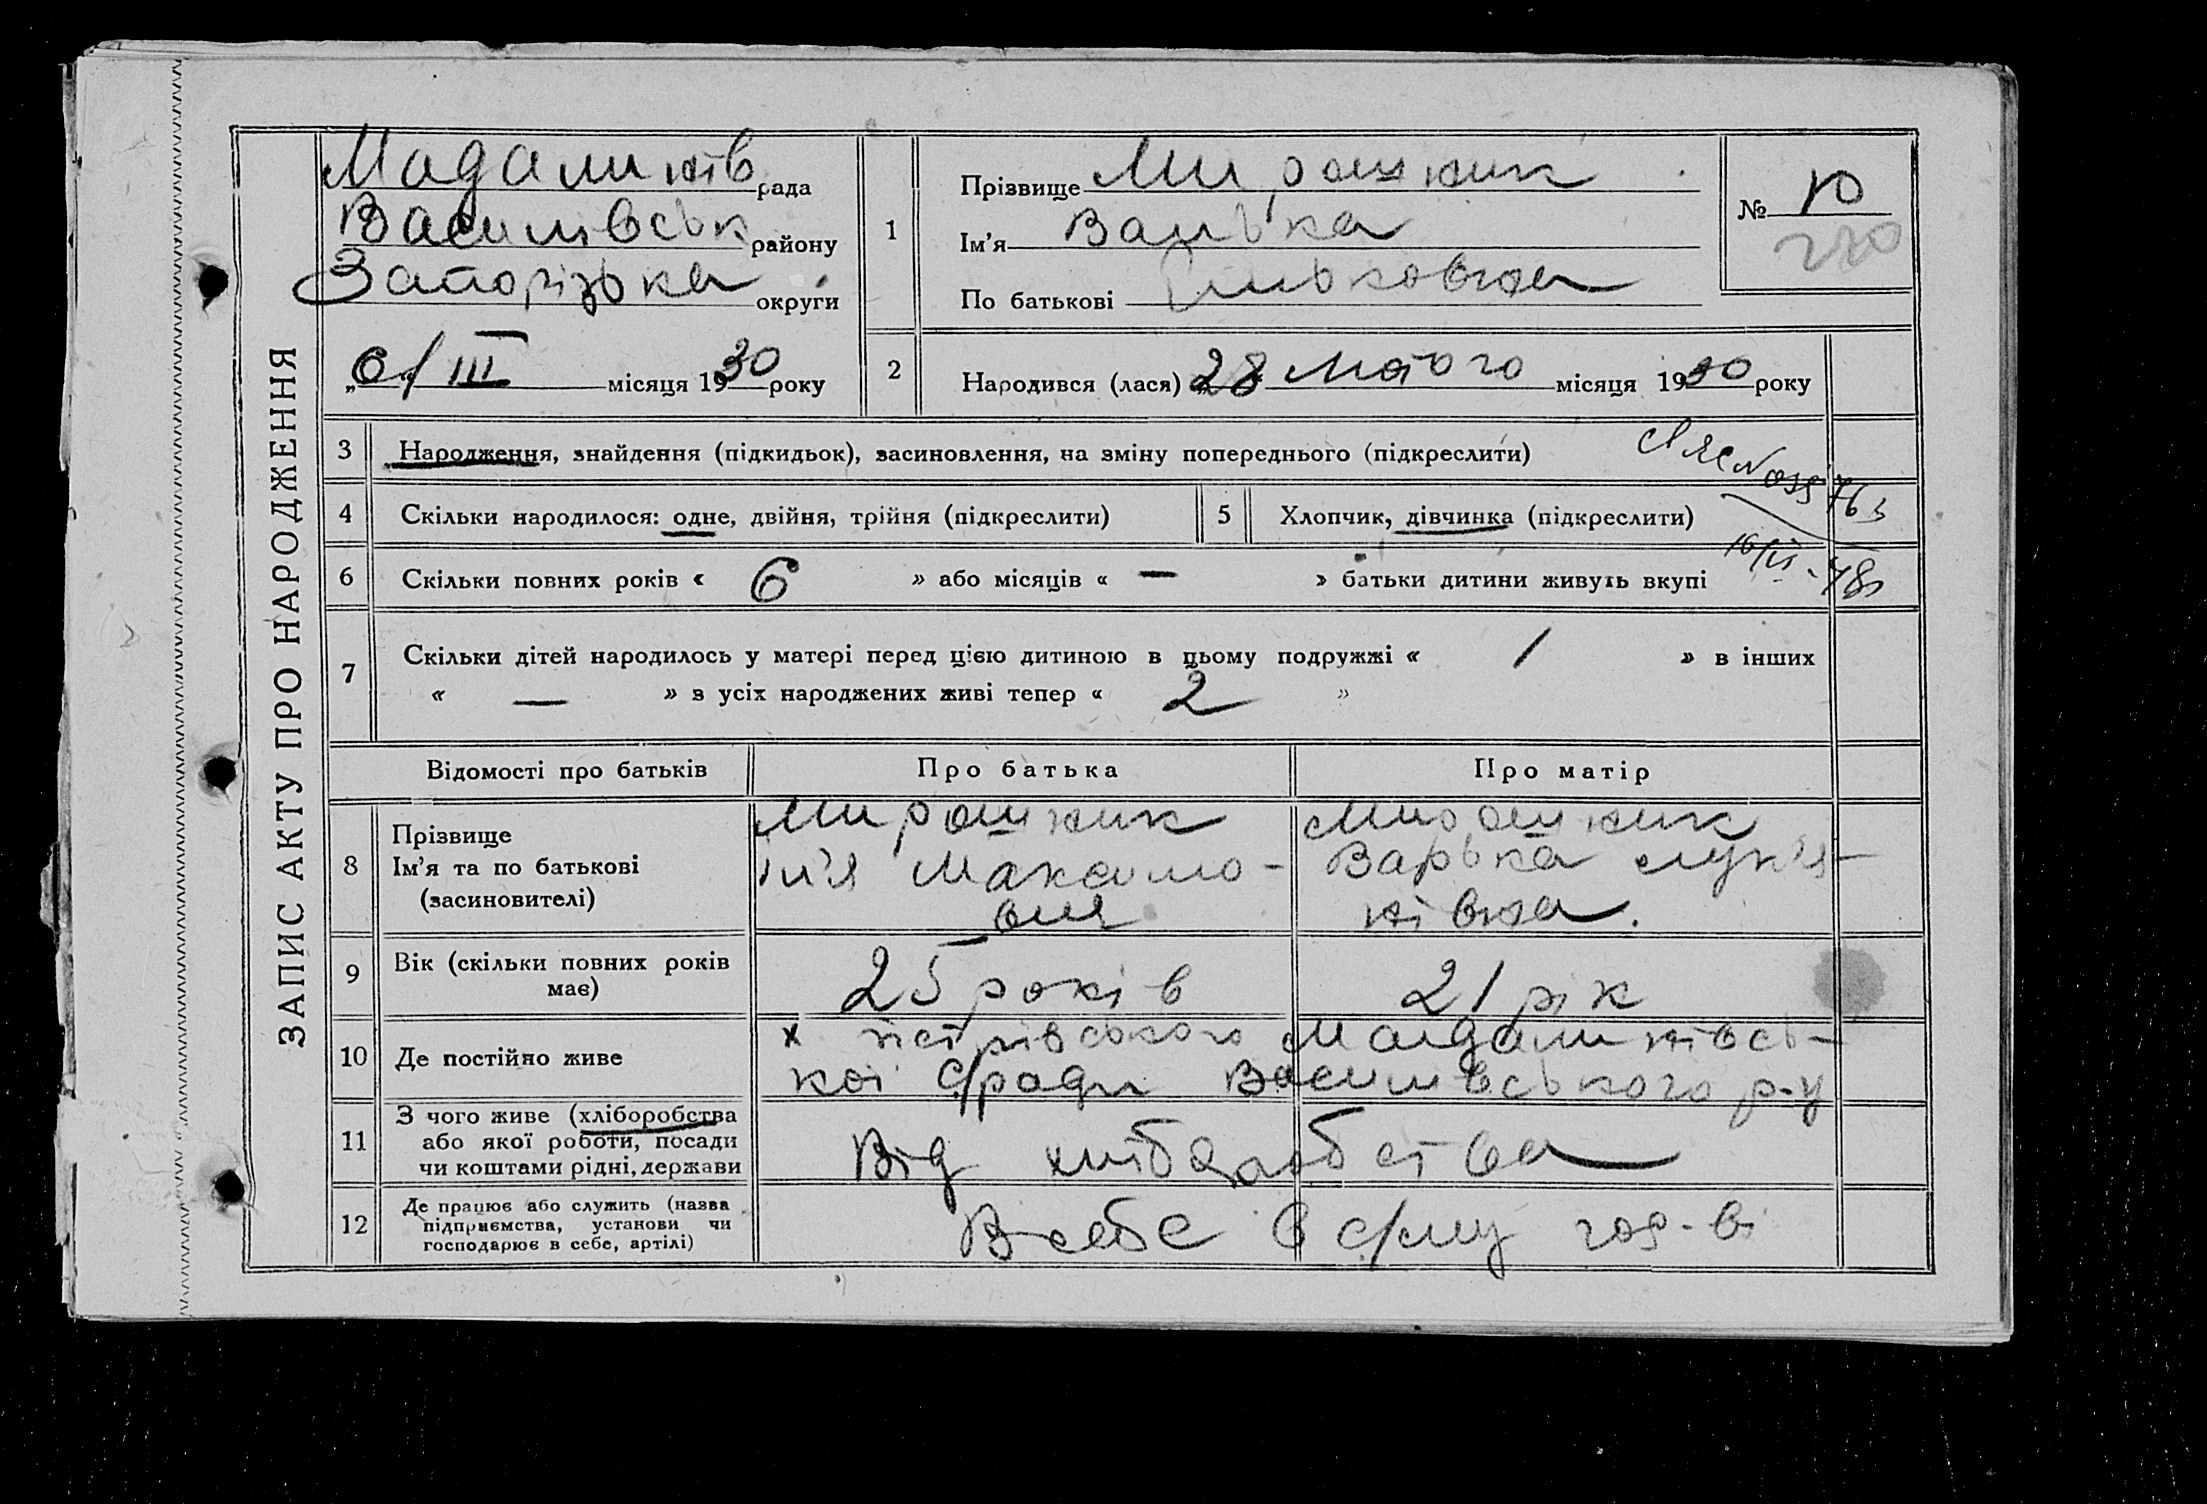 ЗАПИС АКТУ ПРО НАРОДЖЕННЯ
Мадалинів рада
Василівськ району
Запорізька округи
„6/III місяця 1930 року
1
Прізвище Мирошник
Ім'я Валька
По батькові Ильковна
№ 10
2
Народився (лася) „28 Лютого місяця 1930 року
3 Народження, знайдення (підкидьок), засиновлення, на зміну попереднього (підкреслити)
4 Скільки народилося: одне, двійня, трійня (підкреслити) 5 Хлопчик, дівчинка (підкреслити)
6 Скільки повних років « 6 » або місяців « — » батьки дитини живуть вкупі
7 Скільки дітей народилось у матері перед цією дитиною в цьому подружжі « 1 » в інших
« — » з усіх народжених живі тепер « 2 »
Відомості про батьків Про батька Про матір
8 Прізвище
Ім'я та по батькові
(засиновителі)
Мирошник
Ілля Максимо-
вич
Мирошник
Варька Лук'я-
нівна.
9 Вік (скільки повних років
має)
25 років 21 рік
10 Де постійно живе
х Петрівського Магдалинівсь-
кої с/ради Василівського р-у
11 З чого живе (хліборобства
або якої роботи, посади
чи коштами рідні, держави
Від хліборобства
12 Де працює або служить (назва
підприємства, установи чи
господарює в себе, артілі)
В себе в с/му гос-ві